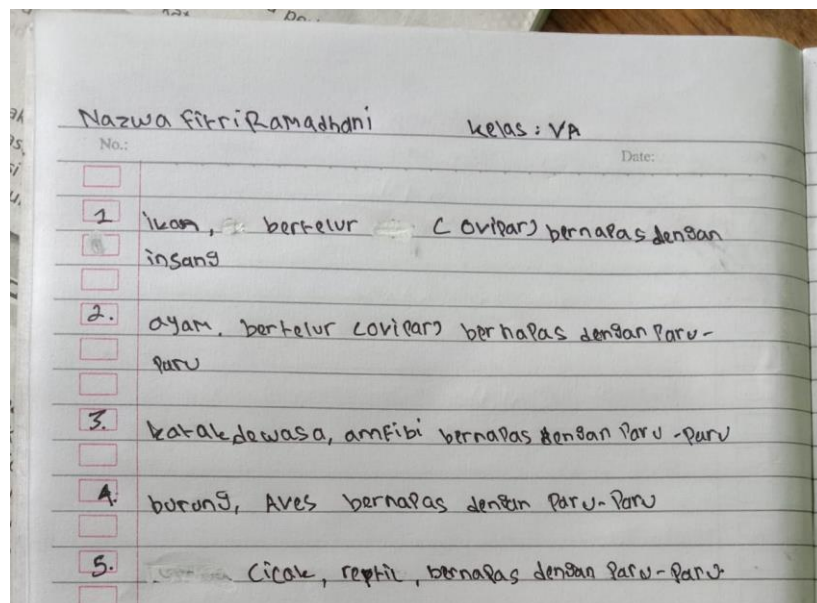 Nazwa Fitri Ramadhani kelas : VA
No.: Date:
1 ikan, bertelur (ovipar) bernapas dengan
insang
2. ayam, bertelur (ovipar) bernapas dengan Paru-
Paru
3. katak dewasa, amfibi bernapas dengan Paru-Paru
4. burung, Aves bernapas dengan Paru-Paru
5. Cicak, reptil, bernapas dengan Paru-Paru.